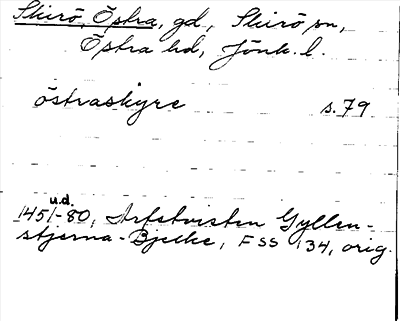 Skirö, Östra, gd., Skirö sn,
Östra hd, Jönk. l.
östraskyre s. 79
u.d.
1451-80, Arfstvisten Gyllen-
stjerna-Bjelke, FSS 134, orig.